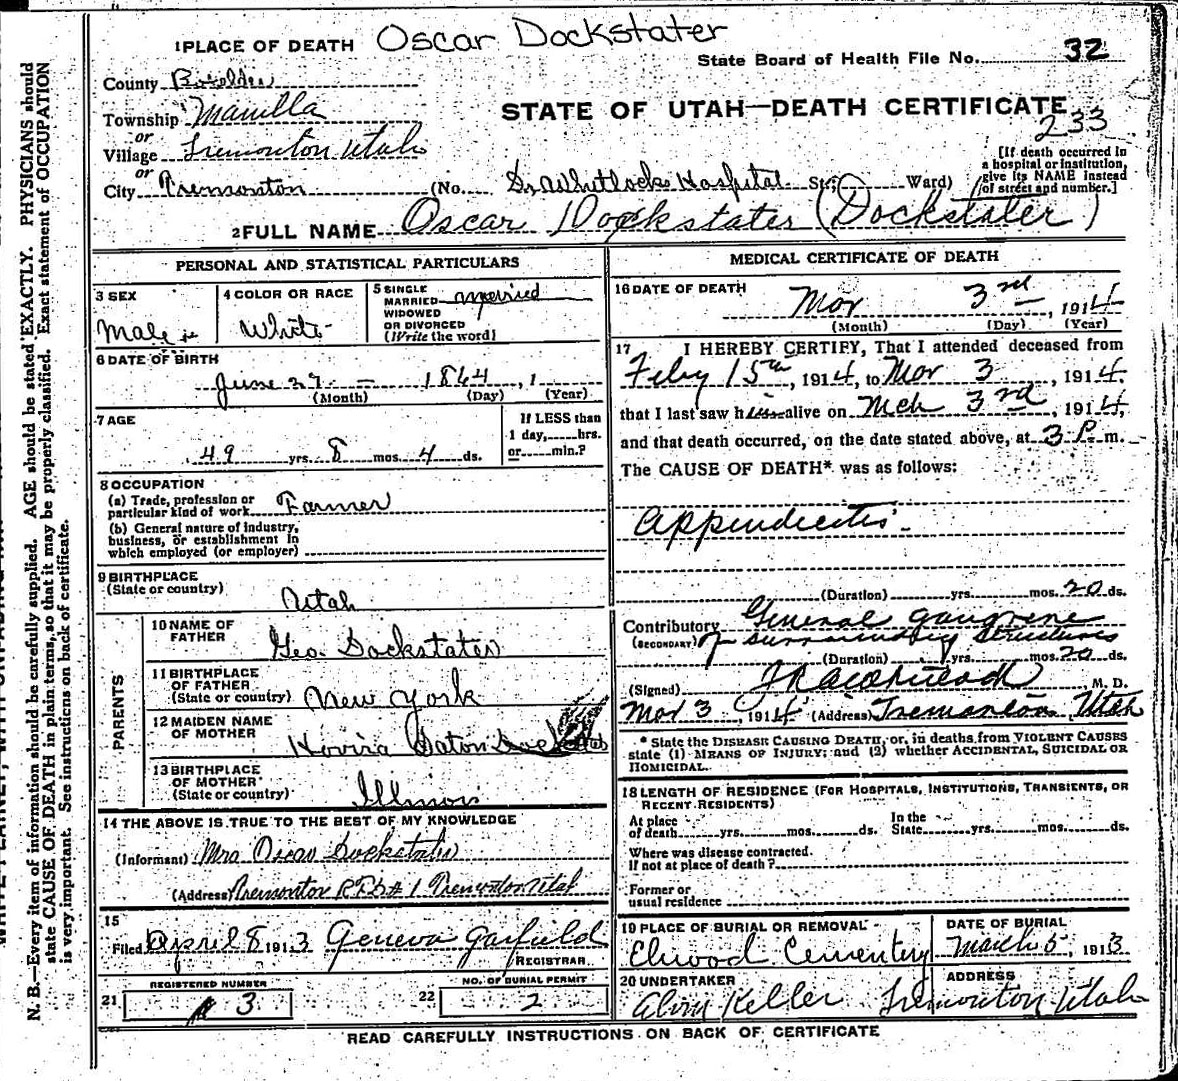 Oscar Dockstater
1 PLACE OF DEATH
State Board of Health File No. 32
County Boxelder
STATE OF UTAH—DEATH CERTIFICATE
Township Manilla
233
or
Village Tremonton Utah
[If death occurred in
a hospital or institution,
give its NAME instead
of street and number.]
or
City Tremonton (No. Hospital St.; Ward)
2 FULL NAME Oscar Dockstater (Dockstater)
PERSONAL AND STATISTICAL PARTICULARS
3 SEX
Male
4 COLOR OR RACE
White
5 SINGLE
MARRIED
WIDOWED
OR DIVORCED
(Write the word)
married
6 DATE OF BIRTH
June 27 — 1864, 1
(Month) (Day) (Year)
7 AGE
49 yrs. 8 mos. 4 ds.
If LESS than
1 day,.....hrs.
or.....min.?
8 OCCUPATION
(a) Trade, profession or
particular kind of work Farmer
(b) General nature of industry,
business, or establishment in
which employed (or employer)
9 BIRTHPLACE
(State or country)
Utah
PARENTS
10 NAME OF
FATHER
Geo Dockstater
11 BIRTHPLACE
OF FATHER
(State or country) New York
12 MAIDEN NAME
OF MOTHER
13 BIRTHPLACE
OF MOTHER
(State or country) Illinois
14 THE ABOVE IS TRUE TO THE BEST OF MY KNOWLEDGE
(Informant) Mrs Oscar Dockstater
(Address) Tremonton RFD # 1 Tremonton Utah
15
Filed April 8 1913 Geneva Garfield
REGISTRAR
21 REGISTERED NUMBER
3
22 NO. OF BURIAL PERMIT
2
MEDICAL CERTIFICATE OF DEATH
16 DATE OF DEATH
Mar 3rd, 1914
(Month) (Day) (Year)
17 I HEREBY CERTIFY, That I attended deceased from
Feby 15th, 1914, to Mar 3, 1914,
that I last saw him alive on Mch 3rd, 1914,
and that death occurred, on the date stated above, at 3 P. m.
The CAUSE OF DEATH* was as follows:
Appendicitis
(Duration) yrs. mos. 20 ds.
Contributory General gangrene
(SECONDARY) of surrounding structures
(Duration) yrs. mos. 20 ds.
(Signed) M. D.
Mar 3, 1914 (Address) Tremonton Utah
* State the DISEASE CAUSING DEATH, or, in deaths from VIOLENT CAUSES
state (1) MEANS OF INJURY; and (2) whether ACCIDENTAL, SUICIDAL OR
HOMICIDAL.
18 LENGTH OF RESIDENCE (FOR HOSPITALS, INSTITUTIONS, TRANSIENTS, OR
RECENT RESIDENTS)
At place
of death yrs. mos. ds.
In the
State yrs. mos. ds.
Where was disease contracted.
If not at place of death?
Former or
usual residence
19 PLACE OF BURIAL OR REMOVAL
Elwood Cementery
DATE OF BURIAL
March 5, 1913
20 UNDERTAKER
Alvin Keller
ADDRESS
Tremonton Utah
READ CAREFULLY INSTRUCTIONS ON BACK OF CERTIFICATE
N. B.—Every item of information should be carefully supplied. AGE should be stated EXACTLY. PHYSICIANS should
state CAUSE OF DEATH in plain terms, so that it may be properly classified. Exact statement of OCCUPATION
is very important. See instructions on back of certificate.